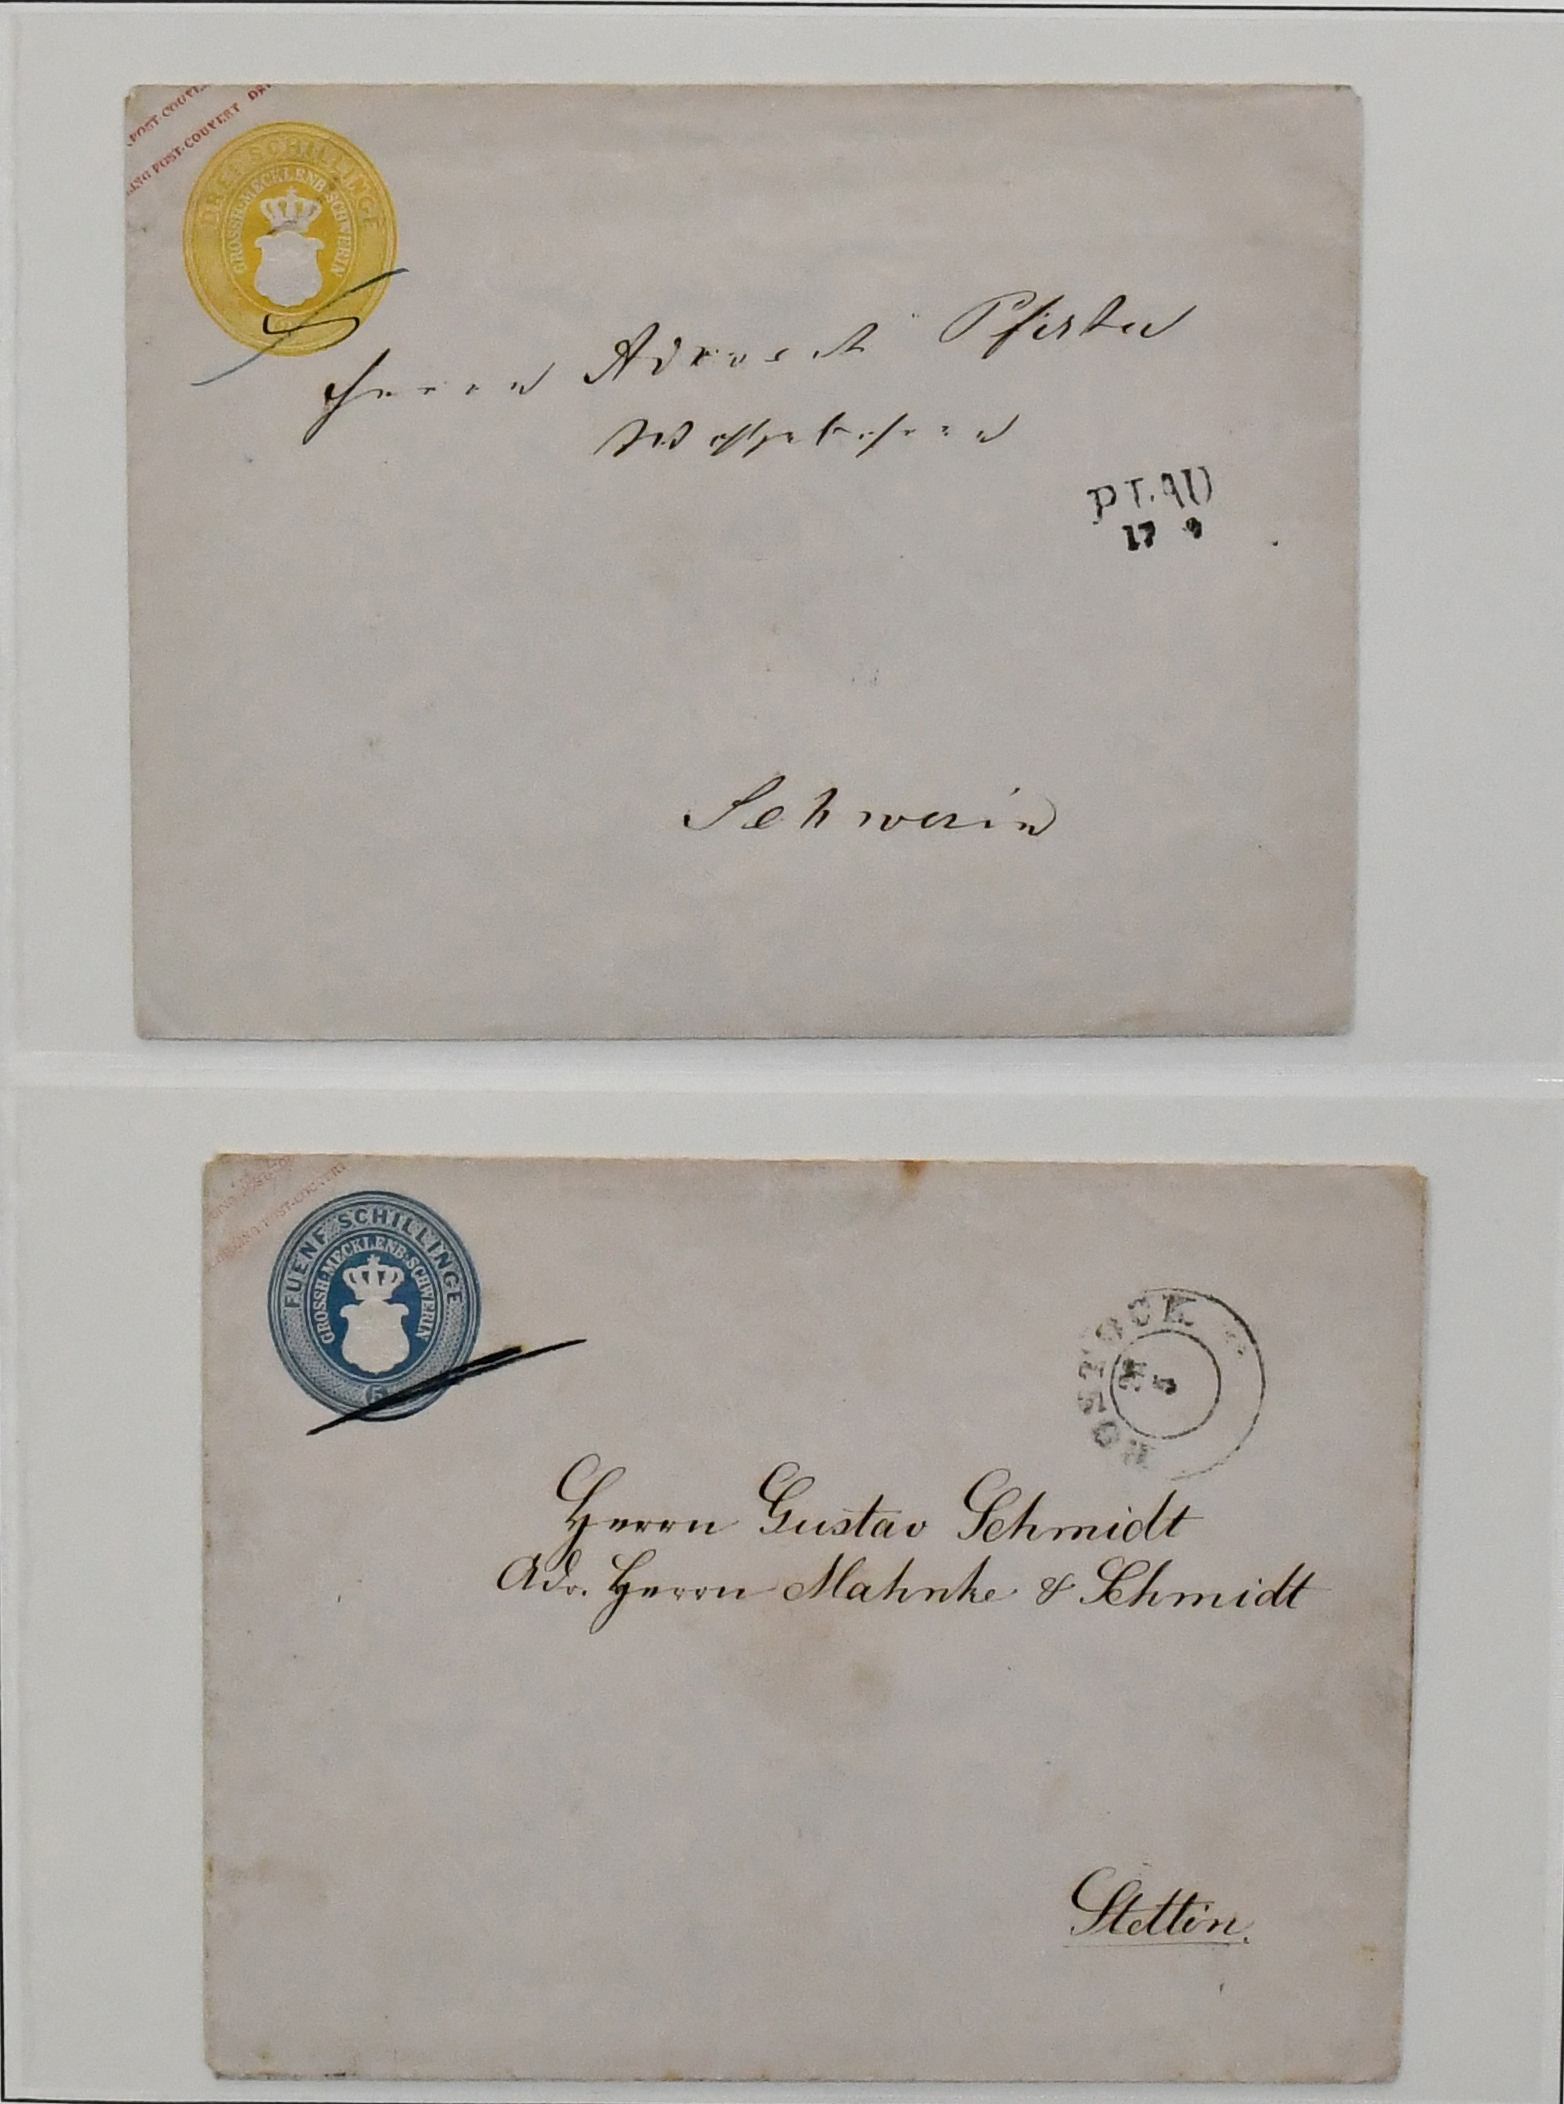 POST-COUVE
ING POST-COUVERT DR
DREI SCHILLINGE
GROSSH. MECKLENB. SCHWERIN
Herrn Advocat Pfister
Wohlgeboren
PLAU
17 9
Schwerin
POST-CO
POST-COUVERT
FUENF SCHILLINGE
GROSSH. MECKLENB. SCHWERIN
5
ROSTOCK
5
Herrn Gustav Schmidt
Adr. Herrn Mahnke & Schmidt
Stettin.